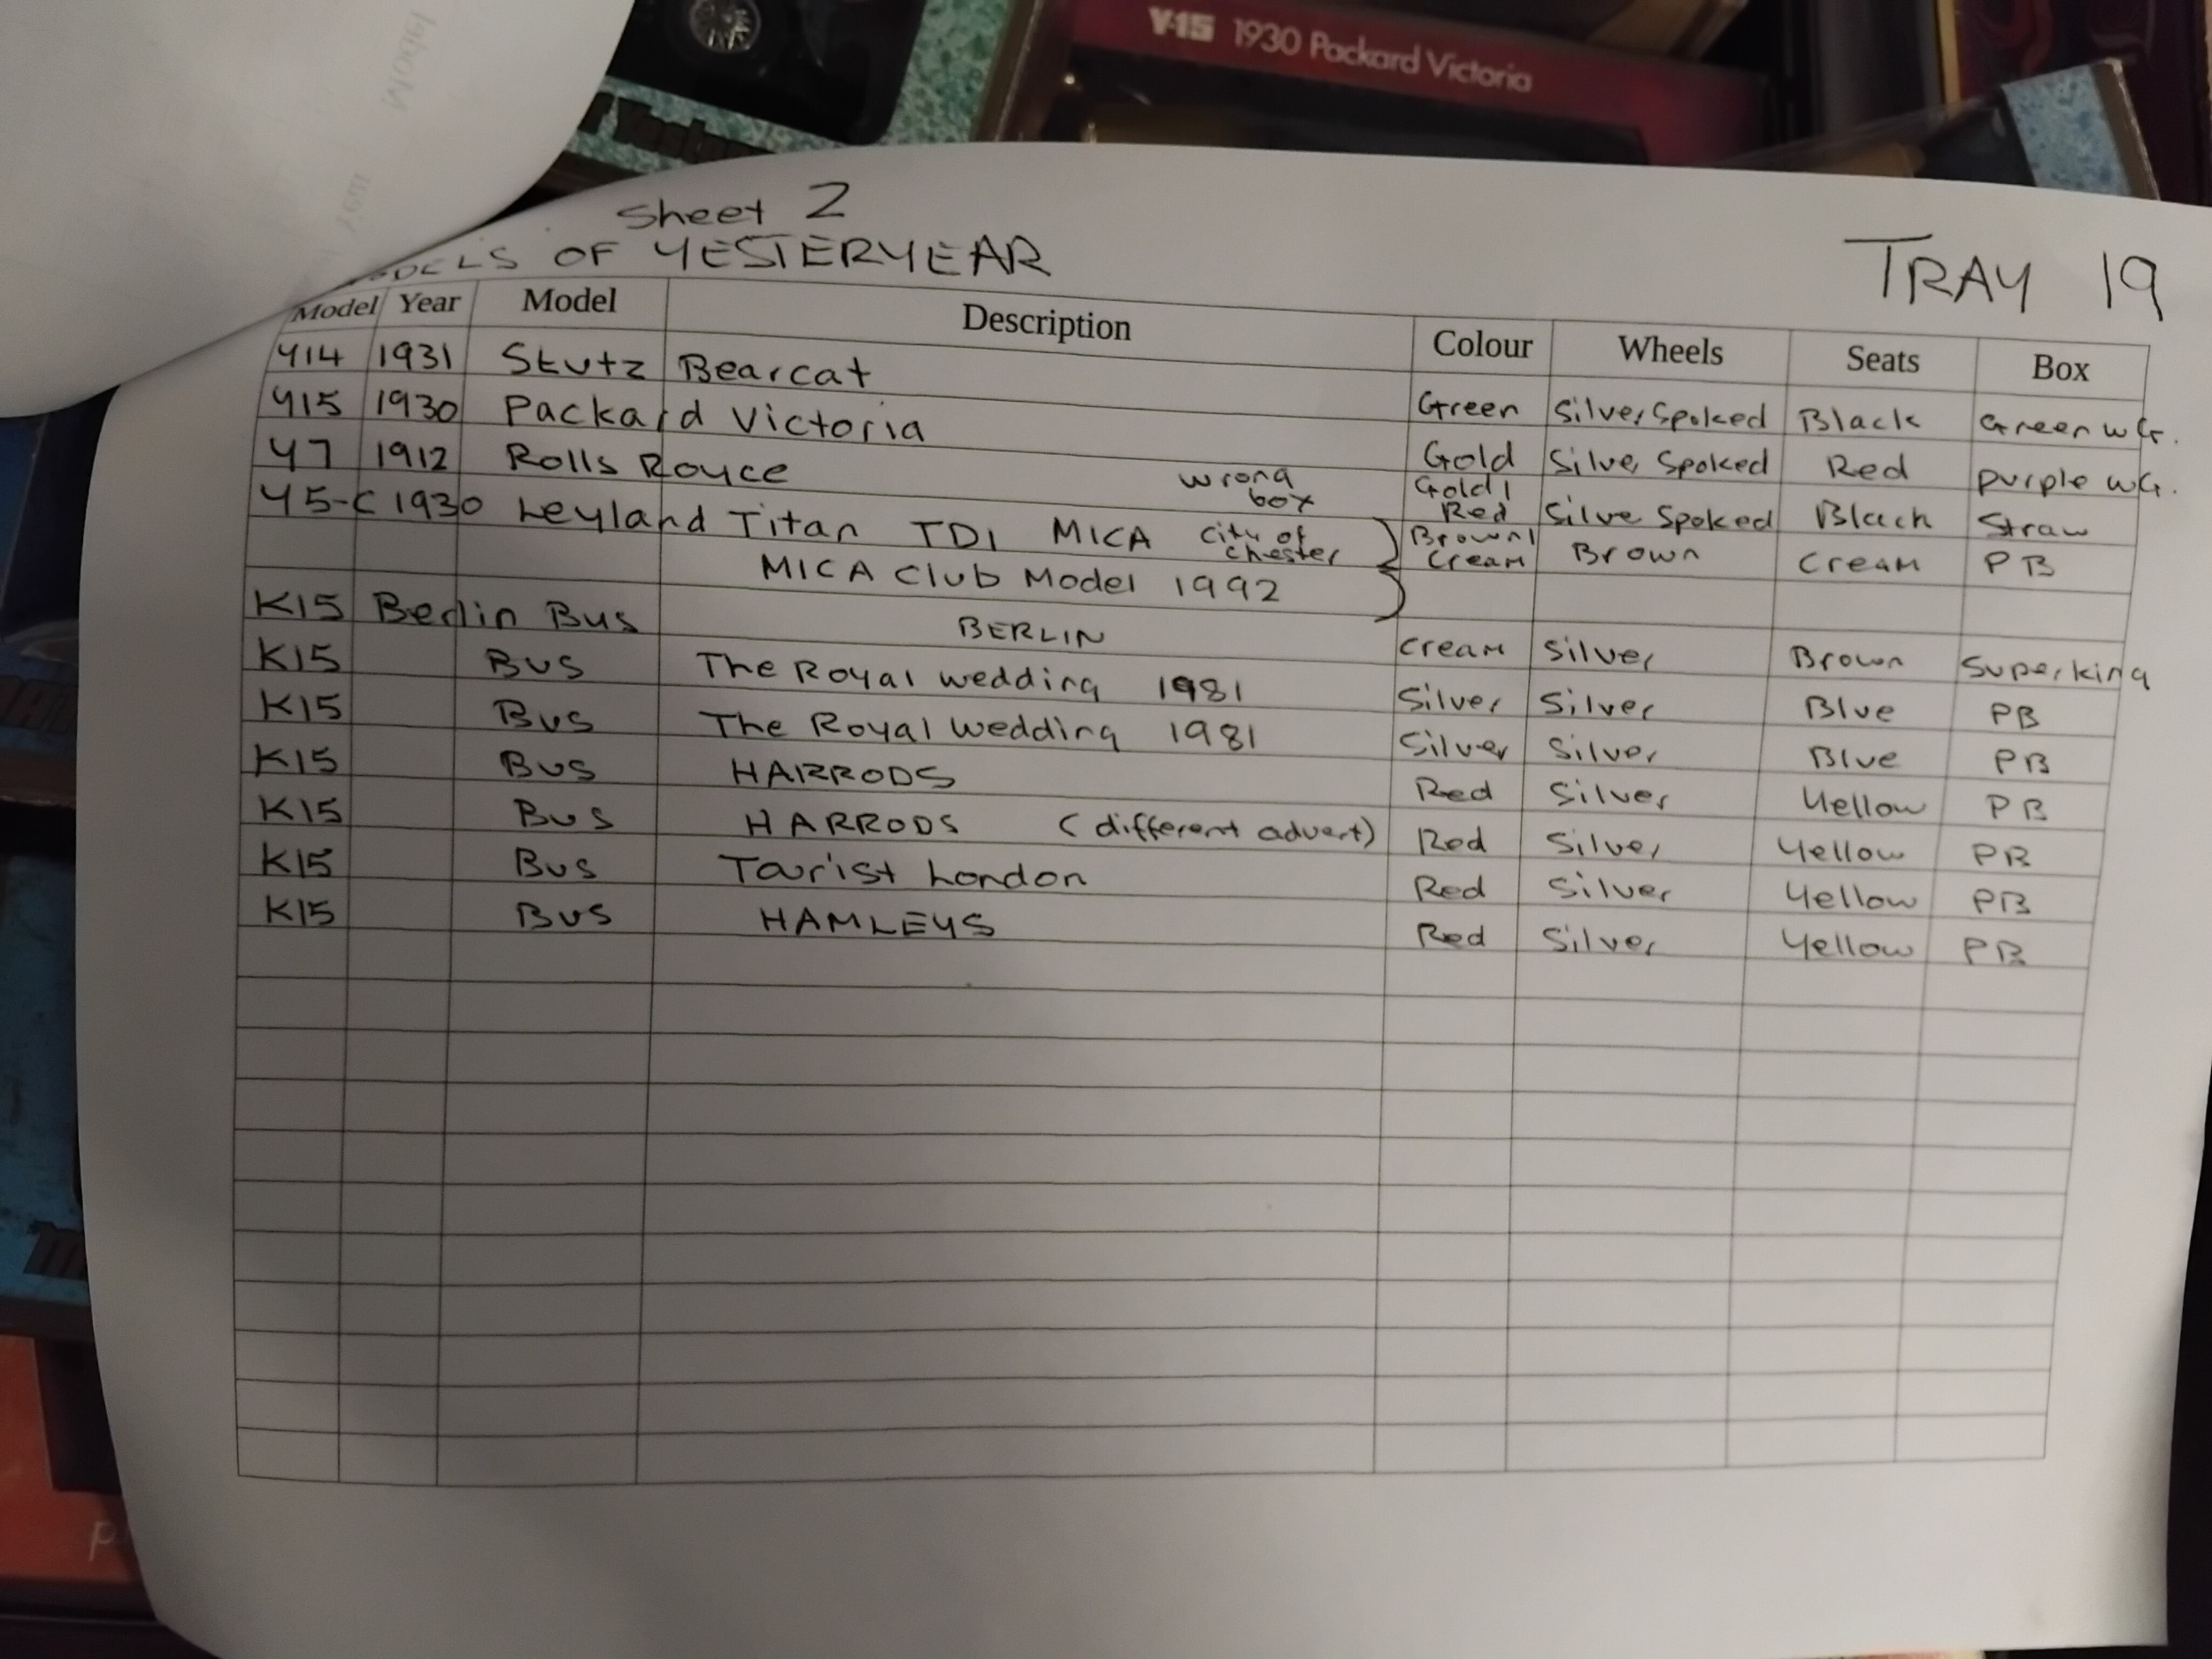 Y-15 1930 Packard Victoria
Model
Sheet 2
MODELS OF YESTERYEAR
TRAY 19
Model Year Model Description Colour Wheels Seats Box
Y14 1931 Stutz Bearcat Green Silver Spoked Black Green WG.
Y15 1930 Packard Victoria Gold Silver Spoked Red Purple WG.
Y7 1912 Rolls Royce wrong box Gold/Red Silve Spoked Black Straw
Y5-C 1930 Leyland Titan TD1 MICA City of Chester Brown/Cream Brown Cream PB
MICA Club Model 1992
K15 Berlin Bus BERLIN Cream Silver Brown Superking
K15 Bus The Royal Wedding 1981 Silver Silver Blue PB
K15 Bus The Royal Wedding 1981 Silver Silver Blue PB
K15 Bus HARRODS Red Silver Yellow PB
K15 Bus HARRODS (different advert) Red Silver Yellow PB
K15 Bus Tourist London Red Silver Yellow PB
K15 Bus HAMLEYS Red Silver Yellow PB